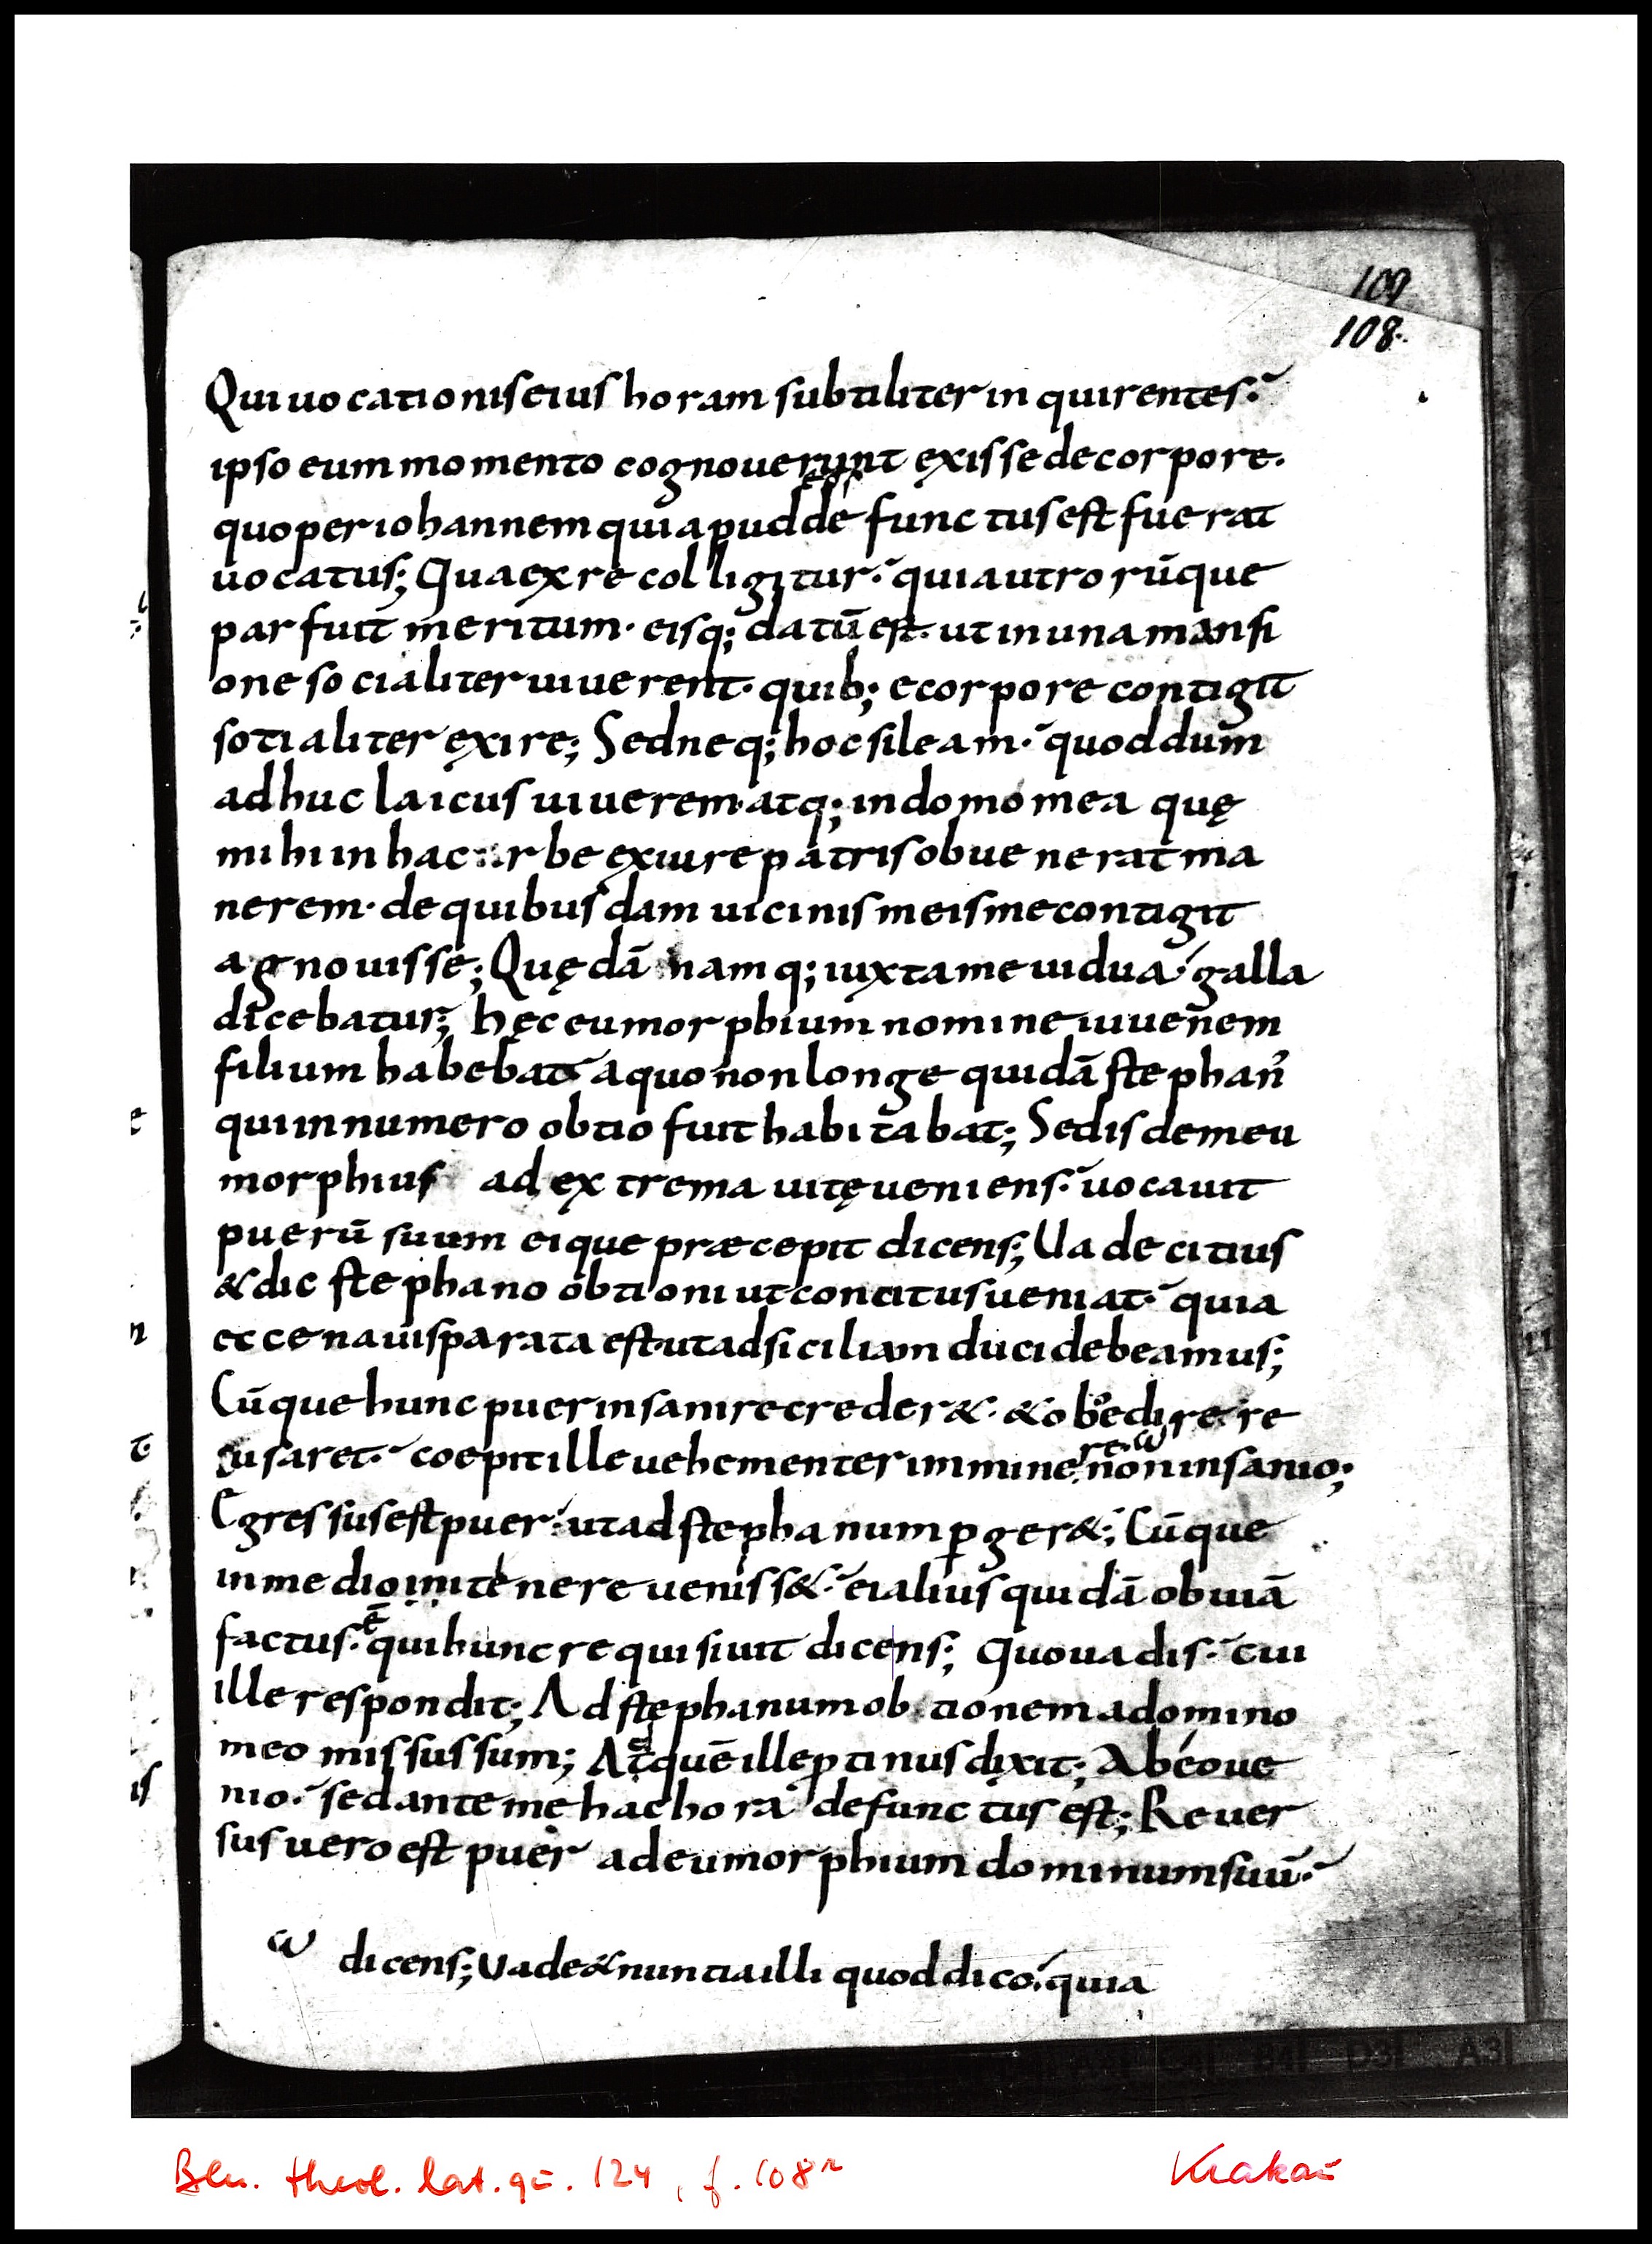 109
108.
Qui uocationis eius horam subtiliter inquirentes.
ipso eum momento cognouerunt exisse de corpore.
quo per iohannem qui apud de functus est fuerat
uocatus; Qua ex re colligitur. quia utrorūque
par fuit meritum. eisq; datū est. ut in una mansi
one socialiter uiuerent. quib; e corpore contigit
sotialiter exire; Sed neq; hoc sileam. quod dum
adhuc laicus uiuerem. atq; in domo mea quę
mihi in hac urbe ex iure patris obuenerat ma
nerem. de quibusdam uicinis meis me contigit
agnouisse; Quędā namq; iuxta me uidua. galla
dicebatur; hęc eumorphium nomine iuuenem
filium habebat a quo non longe quidā stephan᾽
qui in numero obtio fuit habitabat; Sed isdem eu
morphius ad extrema uitę ueniens. uocauit
puerū suum eique præcepit dicens; Uade citius
& dic stephano obtioni ut concitus ueniat. quia
ecce nauis parata est ut ad siciliam duci debeamus;
Cūque hunc puer insanire creder&. & obędire re
cusaret. coepit ille uehementer imminere ω non insanio;
Egressus est puer. ut ad stephanum ꝑger&; Cūque
in medio initenere ueniss&. ei alius quidā obuiā
factus. ē qui hunc requisiuit dicens; Quo uadis. cui
ille respondit; Ad stephanum obtionem a domino
meo missus sum; Atquē ille ꝓtinus dixit; Ab eo ue
nio. sed ante me hac hora defunctus est; Reuer
sus uero est puer ad eumorphium dominum suū.
ω dicens; Uade & nuntia illi quod dico. quia
Bln. theol. lat. qu. 124, f. 108r
Krakau